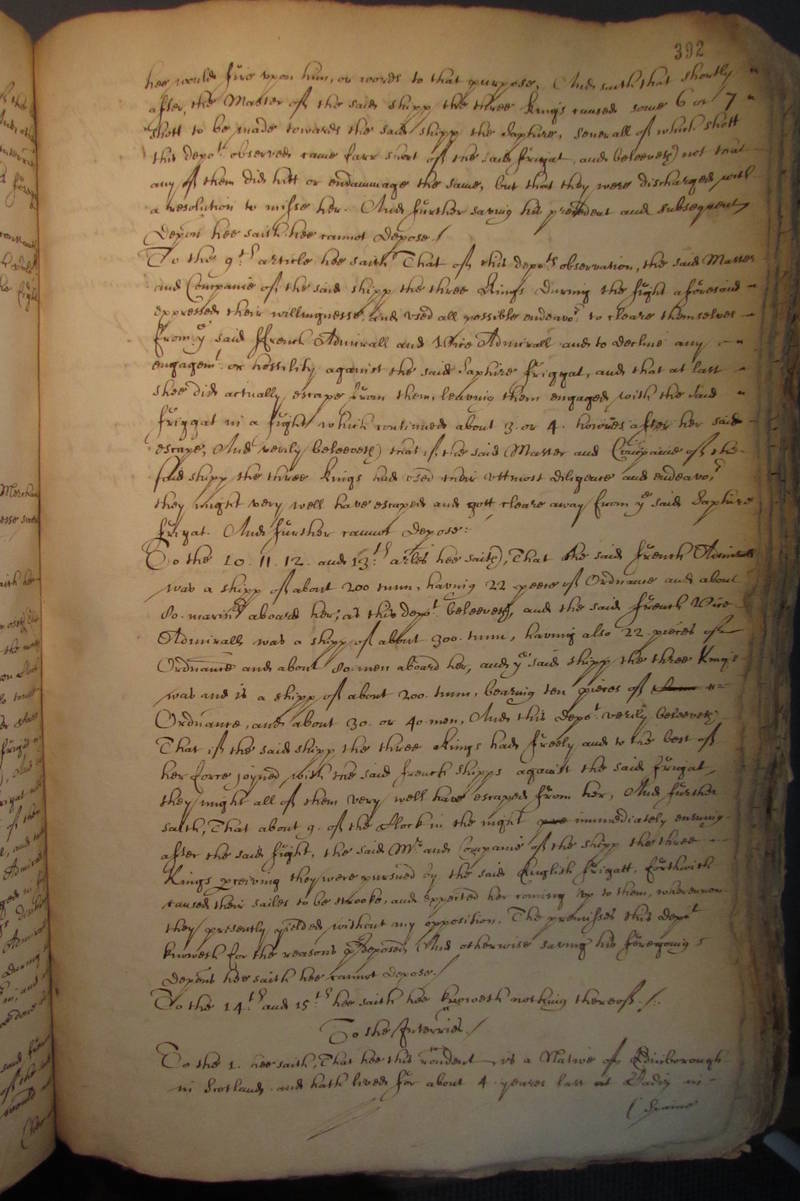 392
hee would fire vpon him, or words to that purpose, And saith that shortly
after, the Master of the said shipp the three Kings caused some 6 or 7
shott to be made towards the said shipp the Saphire, seuerall of which shott
this depot. observed came farr short of the said frigat, and beleeveth not that
any of them did hitt or endammage the same, but that they were discharged with
a resolution to misse her. And further saving his precedent and subsequent
Deposn. hee saith hee cannot depose./
To the 9th article hee saith That of this depots. observation, the said Master
and Companie of the said shipp the three Kings during the fight aforesaid
expressed their willingnesse, and vsed all possible endeavor. to cleare themselves
from ye said ffrench Admirall and Vice Admirall and to decline any
engagemt. or hostility against the said Saphire friggat, and that at last
shee did actually escape from them, leaving them engaged with the said
friggat in a fight which continued about 3. or 4. howres after her said
escape, And verily beleeveth that if the said Master and Companie of the
said shipp the three Kings had vsed their vttmost diligence and endeavor.
they might very well have escaped and gott cleare away from ye said Saphire
frigat. And further cannot depose:
To the 10. 11. 12. and 13th. arles hee saith, That the said french Admirall
was a shipp of about 200 tunn, having 22 peeces of Ordnance and about
80. marinrs aboard her, as this depot. beleeveth, and the said french Vice
Admirall was a shipp of about 300. tunn, having also 22. pieces of
Ordnance and about 80. men aboard her, and ye said shipp the three Kings
was and is a shipp of about 200. tunn, bearing ten pieces of
Ordnance, and about 30. or 40 men, And this depot. verily beleeveth
That if the said shipp the three Kings had freely and to the best of
her force joyned with the said french shipps against the said frigat,
they might all of them very well have escaped from her, And further
saith, That about 9. of the Clock in the night immediately ensuing
after the said fight, the said Mr. and Companie of the shipp the three
Kings perceiving they were pursued by the said English frigatt, forthwith
caused their sailes to be strooke, and expected her coming vp to them, whereupon
they presently yeilded without any opposition. The premisses this depot
knoweth for the reasons predeposed, And otherwise saving his foregoing
deposns hee saith hee cannot depose./
To the 14th. and 15th. hee saith hee knoweth nothing thereof./.
To the Interries./
To the 1. hee saith, That hee this rondent is a Native of Edinborough
in Scotland. and hath lived for about 4. yeares last at Cadiz in
Spaine